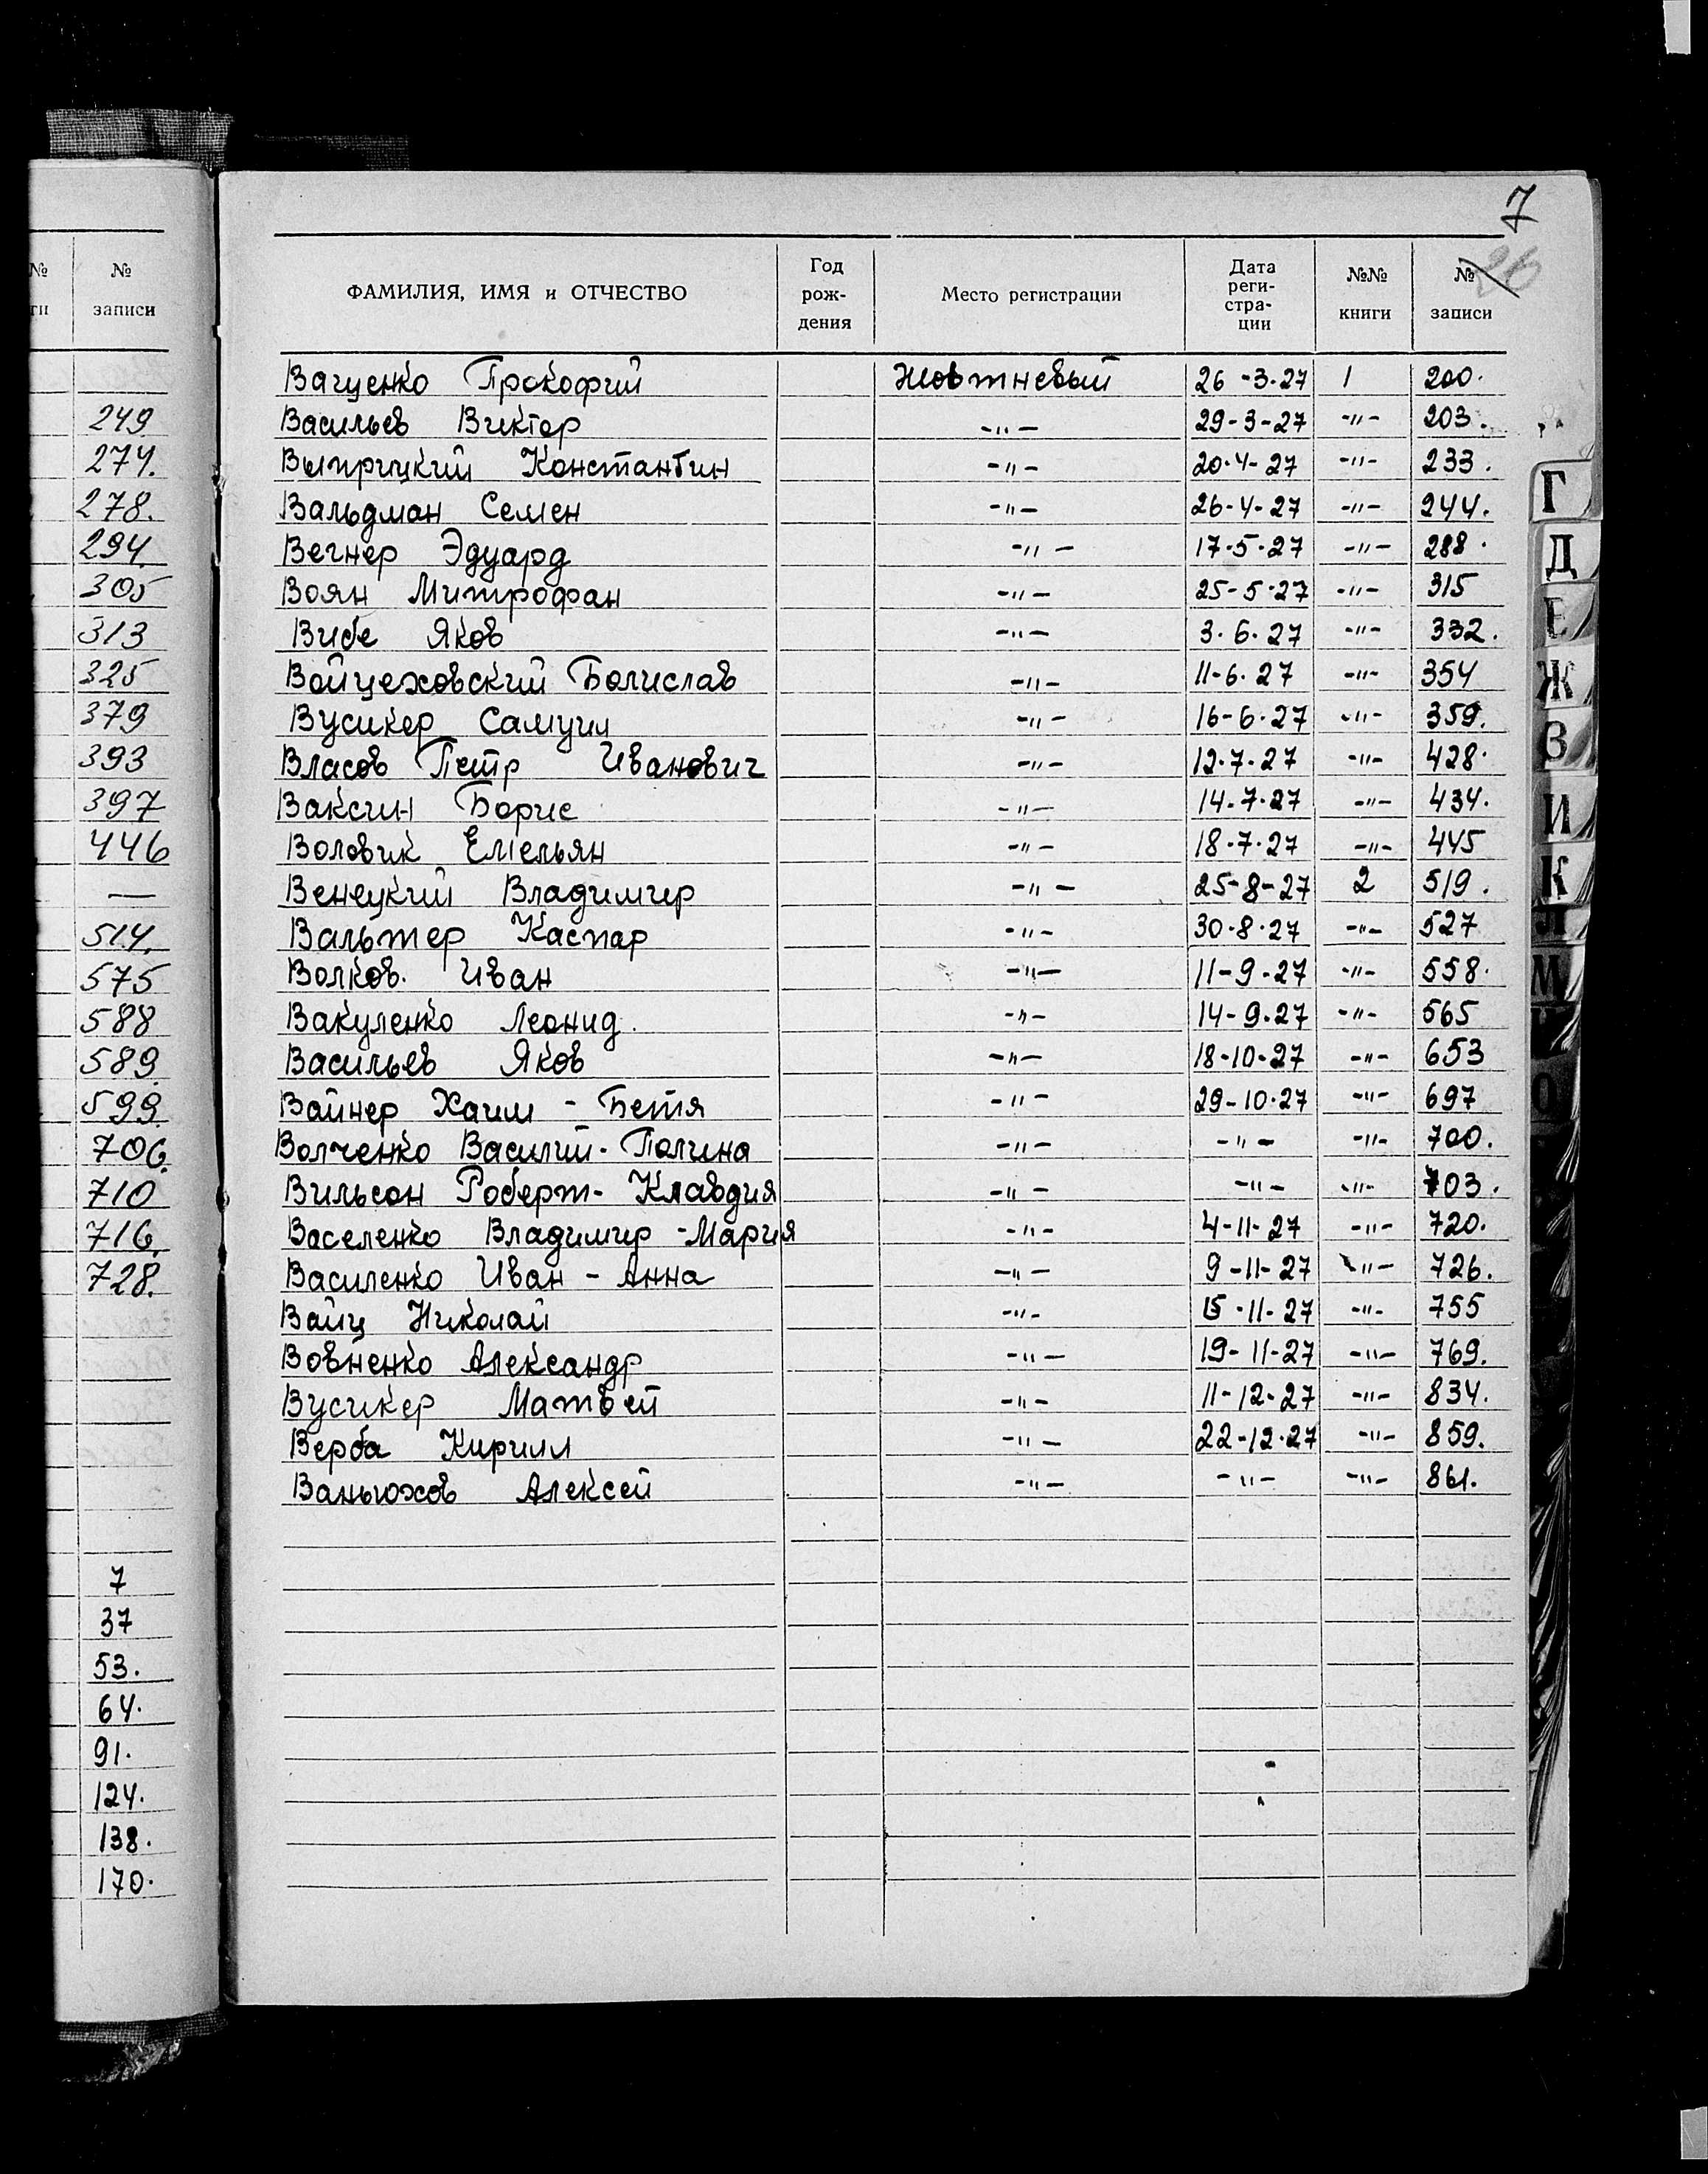 7
№ № ФАМИЛИЯ, ИМЯ и ОТЧЕСТВО Год рож- дения Место регистрации Дата реги- стра- ции №№ книги № записи
ги записи
26
Ващенко Прокофий Жовтневый 26-3-27 1 200.
249 Васильев Виктор -"- 29-3-27 -"- 203.
274. Выприцкий Константин -"- 20-4-27 -"- 233.
278. Вальдман Семен -"- 26-4-27 -"- 244.
294. Вегнер Эдуард -"- 17-5-27 -"- 288.
305 Воян Митрофан -"- 25-5-27 -"- 315
313 Вибе Яков -"- 3.6.27 -"- 332.
325 Войцеховский Болислав -"- 11-6.27 -"- 354
379 Вусикер Самуил -"- 16-6.27 -"- 359.
393 Власов Петр Иванович -"- 12.7.27 -"- 428.
397 Ваксин Борис -"- 14-7.27 -"- 434.
446 Воловик Емельян -"- 18.7.27 -"- 445
— Венецкий Владимир -"- 25-8-27 2 519.
514. Вальтер Каспар -"- 30-8.27 -"- 527
575 Волков. Иван -"- 11-9-27 -"- 558.
588 Вакуленко Леонид. -"- 14-9.27 -"- 565
589. Васильев Яков -"- 18-10-27 -"- 653
599. Вайнер Хаим - Бетя -"- 29-10.27 -"- 697
706. Волченко Василий - Полина -"- -"- -"- 700.
710 Вильсон Роберт - Клавдия -"- -"- -"- 703.
716. Васеленко Владимир - Мария -"- 4-11-27 -"- 720.
728. Василенко Иван - Анна -"- 9-11-27 -"- 726.
Вайц Николай -"- 15-11-27 -"- 755
Вовненко Александр -"- 19-11-27 -"- 769.
Вусикер Матвей -"- 11-12-27 -"- 834.
Верба Кирилл -"- 22-12.27 -"- 859.
Ваньюхов Алексей -"- -"- -"- 861.
7
37
53.
64.
91.
124.
138.
170.
Г
Д
Е
Ж
З
И
К
Л
М
О